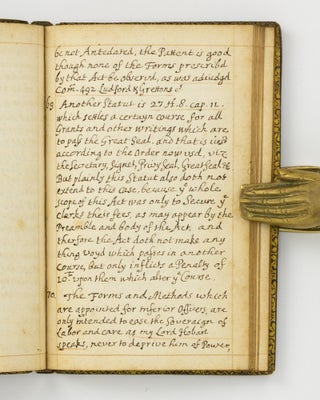 be not Antedated, the Patent is good
though none of the Forms prescribd
by that Act be observd, as was adiudgd
Com. 492 Ludford & Grettons c.
69 Another Statut is 27. H. 8. cap. 11.
which settles a certayn course for all
Grants and other writings which are
to pass the Great Seal. and that is
according to the Order now usd, viz
the Secretary, Signet, Privy Seal, Great Seal &c
But plainly this Statut also doth not
extend to this case, because ye whole
scope of this Act was only to Secure ye
Clerks their fees, as may appear by the
Preamble and body of the Act. and
therfore the Act doth not make any
thing voyd which passes in another
Course, but only inflicts a Penalty of
10li. upon them which alter ye Course.
70. The Forms and Methods which
are appointed for inferior Officers, are
only intended to ease the Soveraign of
Labor and care, as my Lord Hobart
speaks, never to deprive him of Power,